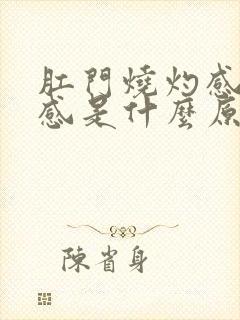 肛門燒灼感
感是什麼原
陳省身